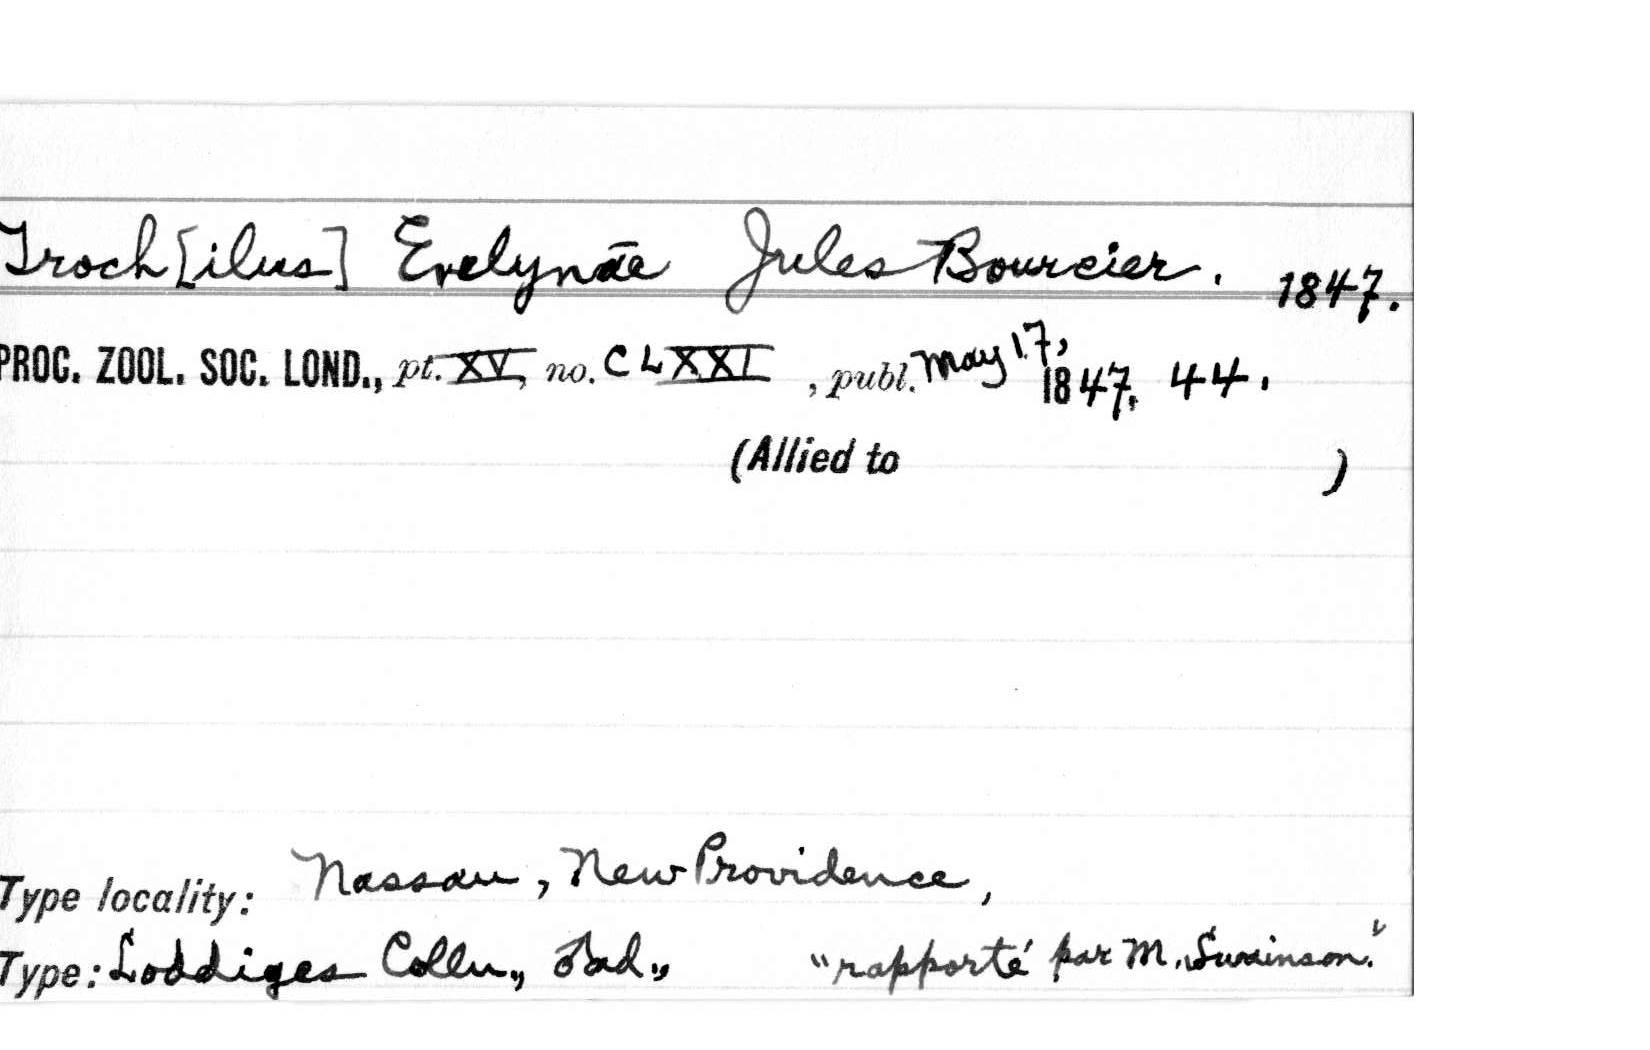 Troch[ilus] Evelynæ Jules Bourcier. 1847.
PROC. ZOOL. SOC. LOND., pt. XV, no. CLXXI, publ. May 17, 1847, 44.
(Allied to )
Type locality: Nassau, New Providence,
Type: Loddiges Colln., "rapporté par M. Swainson."